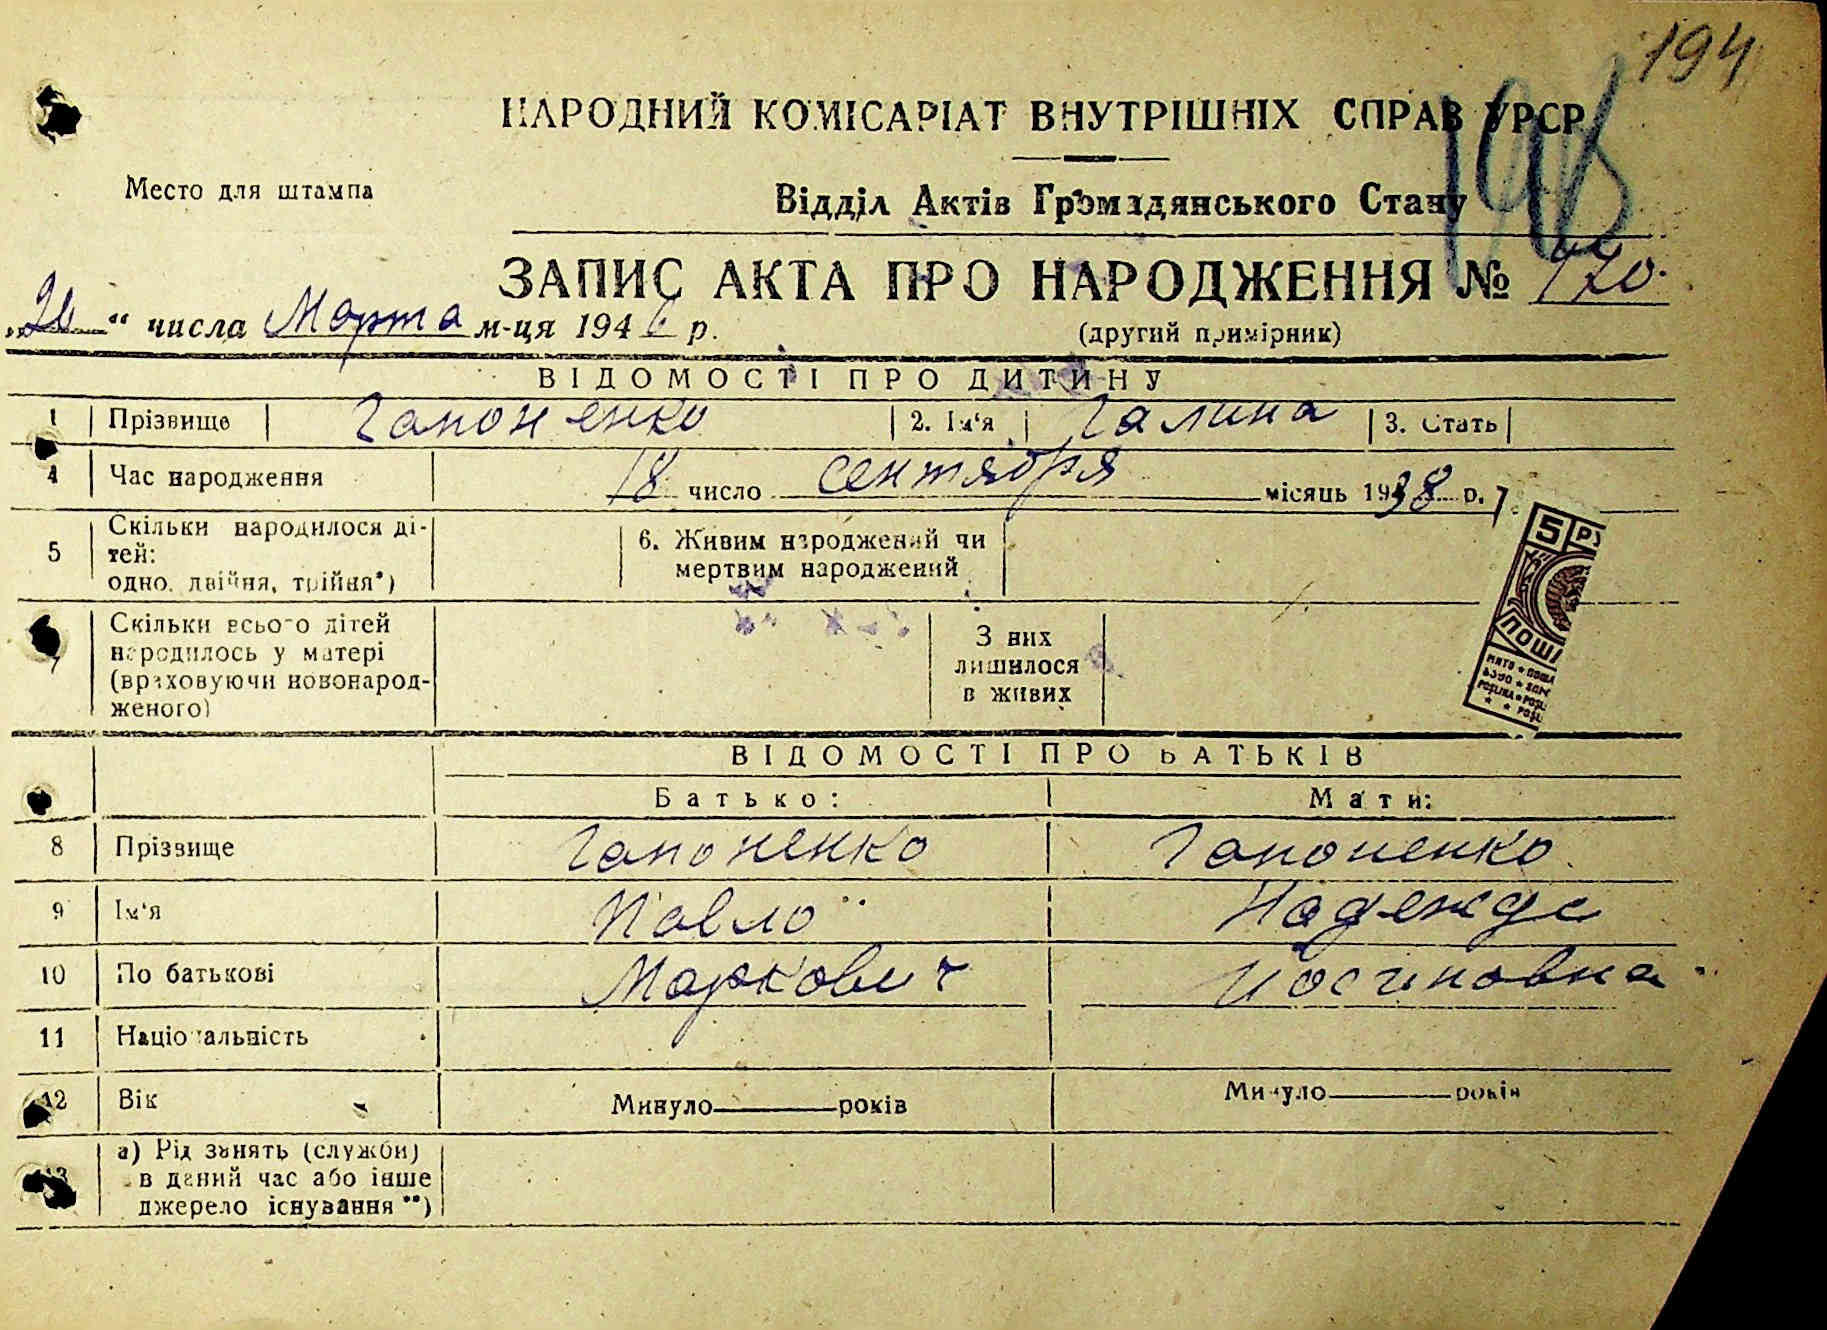 194
НАРОДНИЙ КОМІСАРІАТ ВНУТРІШНІХ СПРАВ УРСР
Место для штампа
Відділ Актів Громадянського Стану
ЗАПИС АКТА ПРО НАРОДЖЕННЯ №
„ “ числа Марта м-ця 194 р.
(другий примірник)
ВІДОМОСТІ ПРО ДИТИНУ
1 Прізвище Гапоненко 2. Ім'я Галина 3. Стать
4 Час народження 18 число сентября місяць 1938 р.
5 Скільки народилося ді-
тей:
одно, двійня, трійня*)
6. Живим народжений чи
мертвим народжений
7 Скільки всього дітей
народилось у матері
(враховуючи новонарод-
женого)
З них
лишилося
в живих
5 РУ
ПОШ
ВІДОМОСТІ ПРО БАТЬКІВ
Батько: Мати:
8 Прізвище Гапоненко Гапоненко
9 Ім'я Павло Надежда
10 По батькові Маркович Иосиповна
11 Національність
12 Вік Минуло———років Минуло———років
13 а) Рід занять (служби)
в даний час або інше
джерело існування **)